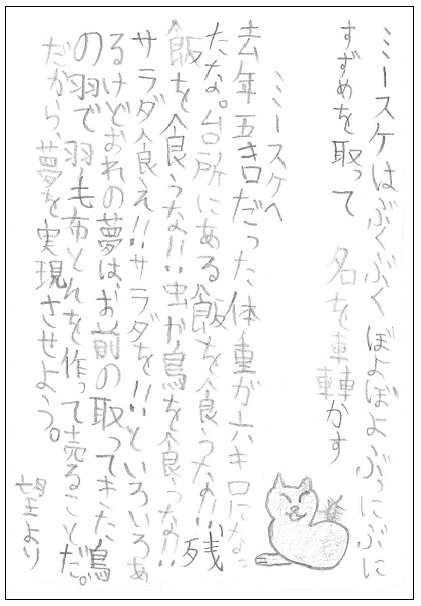 ミースケはぶくぶくぼよぼよぶにぶに
すずめを取って 名を轟かす
ミースケへ
去年五キロだった体重が六キロになっ
たな。台所にある飯を食うな!!残
飯を食うな!!虫か鳥を食うな!!
サラダ食え!!サラダを!!といろいろあ
るけどおれの夢は、お前の取ってきた鳥
の羽で羽毛布とんを作って売ることだ。
だから、夢を実現させよう。
望より